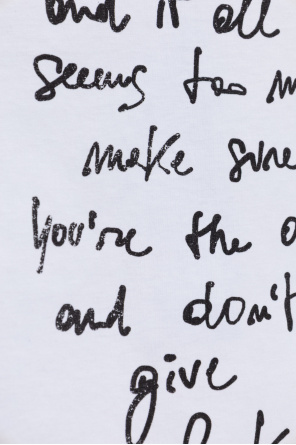 and it all
seems too m
make sure
you're the o
and don't
give